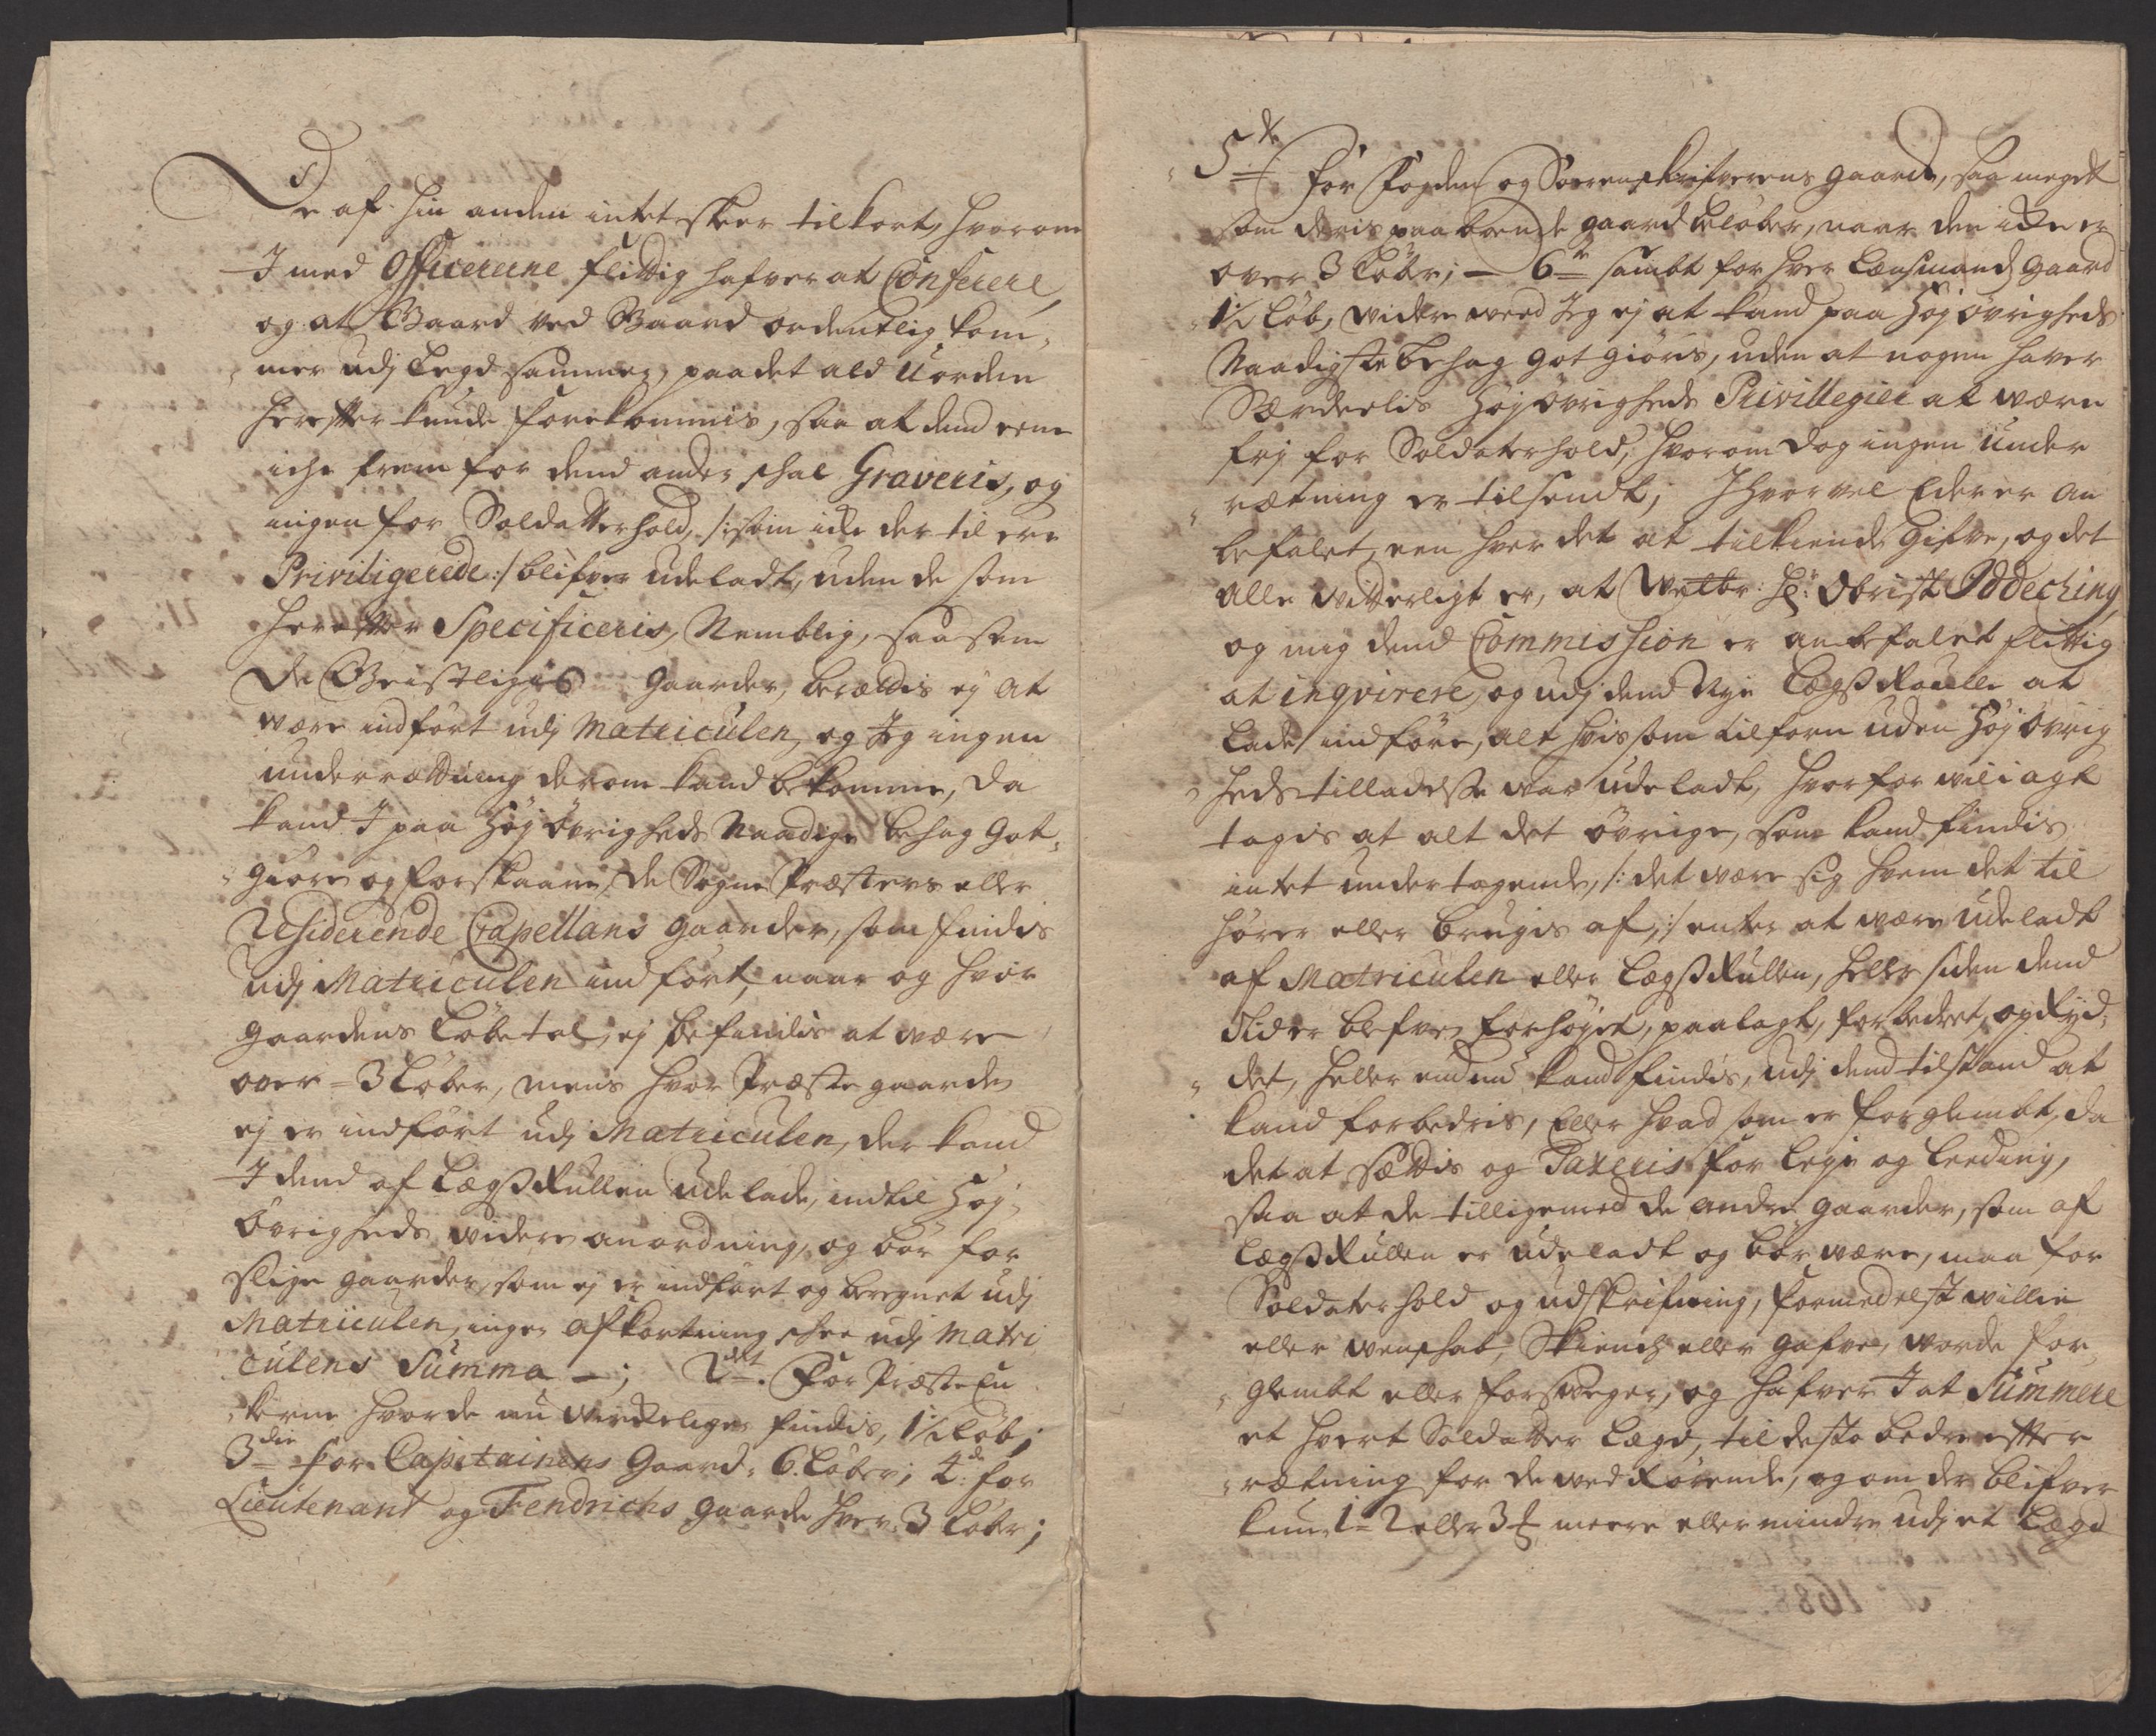 De af hin anden intet skeer tilkort, hvorom
I med Officererne flittig hafver at Conferere,
og at Gaard ved Gaard ordentlig kom¬
mer udj Legd sammen, paa det ald Uorden
herefter kunde forekommis, saa at dend eene
iche frem for dend anden schal Graveris, og
ingen for Soldatterhold, /: som icke der til ere
Priviligerede :/ blifver udeladt, uden de som
herefter Specificeris, Nemblig, saasom
De Geistligis gaarder, berættis ej at
være indført udj Matriculen, og Jeg ingen
underrættning derom kand bekomme, da
kand I paa Høj Øvrigheds Naadige behag Got¬
giøre og forskaane, de Sogne Præsters eller
Residerende Capellans gaarder, som findis
udj Matriculen indført, naar og hvor
gaardens Løbetal, ej befindis at være
over = 3 Løber, mens hvor Præste gaarde
ej er indført udj Matriculen, der kand
I dend af LægsRullen udelade, indtil Høj¬
Øvrigheds videre anordning, og bør for
slige gaarder, som ej er indført og beregnet udj
Matriculen, ingen afkortning schee udj Matri
culens Summa -; 2det. For Præste En
kerne hvor de nu virkeligen findis, 1½ Løb;
3die For Capitainens Gaard 6. Løber; 4de for
Lieutenant og Fendrichs gaarde hver 3 Løber;
5te for Fogden og Sorenskrifverens gaarde, saa meget
som deris paaboende gaard beløber, naar den icke er
over 3 Løber; - 6te sambt for hver Lensmands gaard
1½ Løb, videre veed Jeg ej at kand paa Høj øvrigheds
Naadigste behag got giøris, uden at nogen haver
Særdeelis Høj øvrigheds Privillegier at være
frj for Soldaterhold, hvorom dog ingen under
rætning er tilsendt; Ihvorvel Eder er an
befalet, een hver det at tilkiende gifve, og det
alle vitterligt er, at Welbr: Hr: Obrist Oddeching
og mig dend Commission er anbefalet flittig
at inqvirere, og udj dend Nye LægsRoulle at
lade indføre, alt hvis som tilforn uden Høj Øvrig
heds tilladelse var udeladt, hvorfor vel i agt
tagis at alt det øvrige, som kand findis
intet undertagende, /: det være sig hvem det til
hører eller brugis af, :/ enten at være udeladt
af Matriculen eller LægsRullen, heller siden dend
Tid er blefven forhøjet, paalagt, forbedret, opRyd¬
det, heller endnu kand findis, udj dend tilstand at
kand forbedris, Eller hvad som er forglembt, da
det at sættis og Taxeris for Leje og Leeding,
saa at de tilligemed de andre gaarder, som af
LægsRullen er udeladt og bør være, maa for
Soldaterhold og udskrifning, formedelst villie
eller Venschab, Skienck eller gafve, vorde for¬
glembt eller forsveger, og hafver I at Summere
et hvert Soldatter Lægd, til desto bedre efter
rætning for de vedkommende, og om der blifver
kun 1 = 2 eller 3 meere eller mindre udj et Lægd